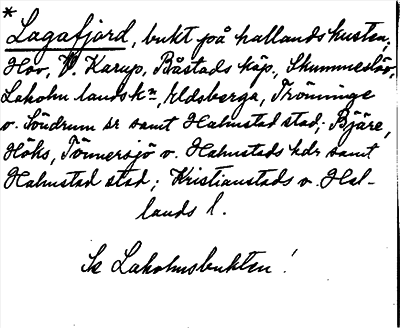 *
Lagafjord, bukt på hallandskusten,
Hov, V. Karup, Båstads köp, Skummeslöv,
Laholm landskn, Eldsberga, Trönninge
o. Söndrum sr samt Halmstad stad; Bjäre,
Höks, Tönnersjö o. Halmstads hdr samt
Halmstad stad; Kristianstads o. Hal-
lands l.
Se Laholmsbukten!